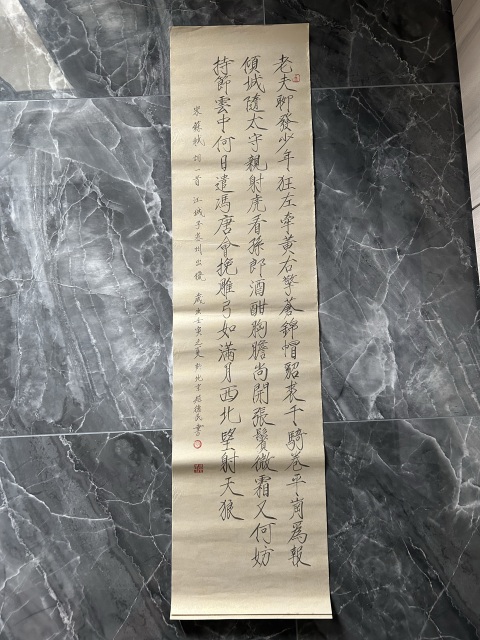 老夫聊發少年狂左牽黃右擎蒼錦帽貂裘千騎卷平崗爲報
傾城隨太守親射虎看孫郎酒酣胸膽尚開張鬢微霜又何妨
持節雲中何日遣馮唐會挽雕弓如滿月西北望射天狼
宋蘇軾詞一首江城子密州出獵 歲次壬寅之夏於北京趙德民書